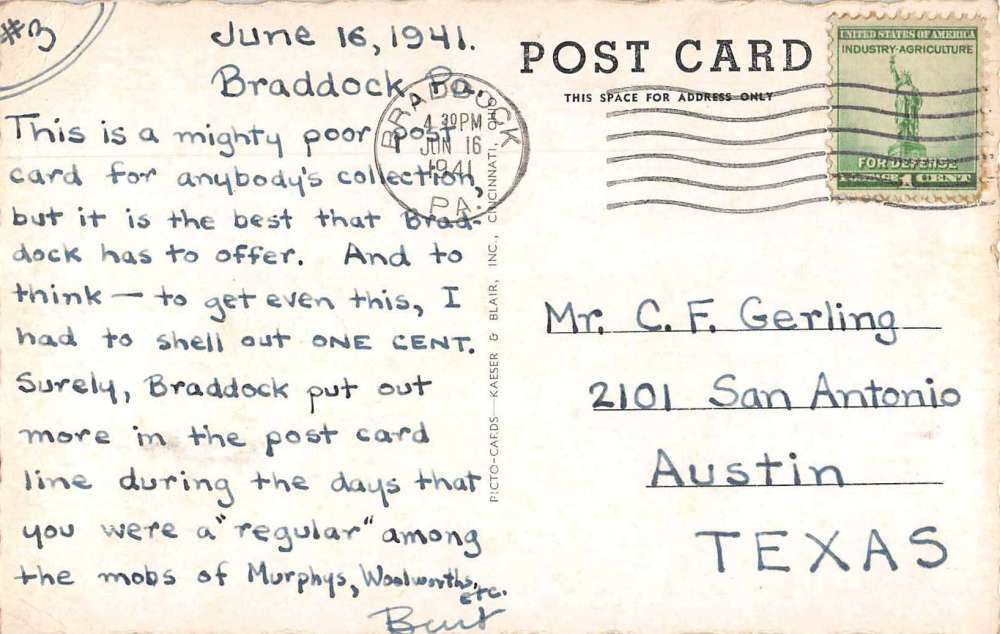 #3
June 16, 1941.
Braddock, Pa.
This is a mighty poor post
card for anybody's collection,
but it is the best that Brad-
dock has to offer. And to
think — to get even this, I
had to shell out ONE CENT.
Surely, Braddock put out
more in the post card
line during the days that
you were a "regular" among
the mobs of Murphys, Woolworths,
etc.
Burt
BRADDOCK
4 30 PM
JUN 16
1941
PA.
PICTO-CARDS—KAESER & BLAIR, INC., CINCINNATI, OHIO
POST CARD
THIS SPACE FOR ADDRESS ONLY
UNITED STATES OF AMERICA
INDUSTRY·AGRICULTURE
FOR DEFENSE
1 CENT
Mr. C. F. Gerling
2101 San Antonio
Austin
TEXAS